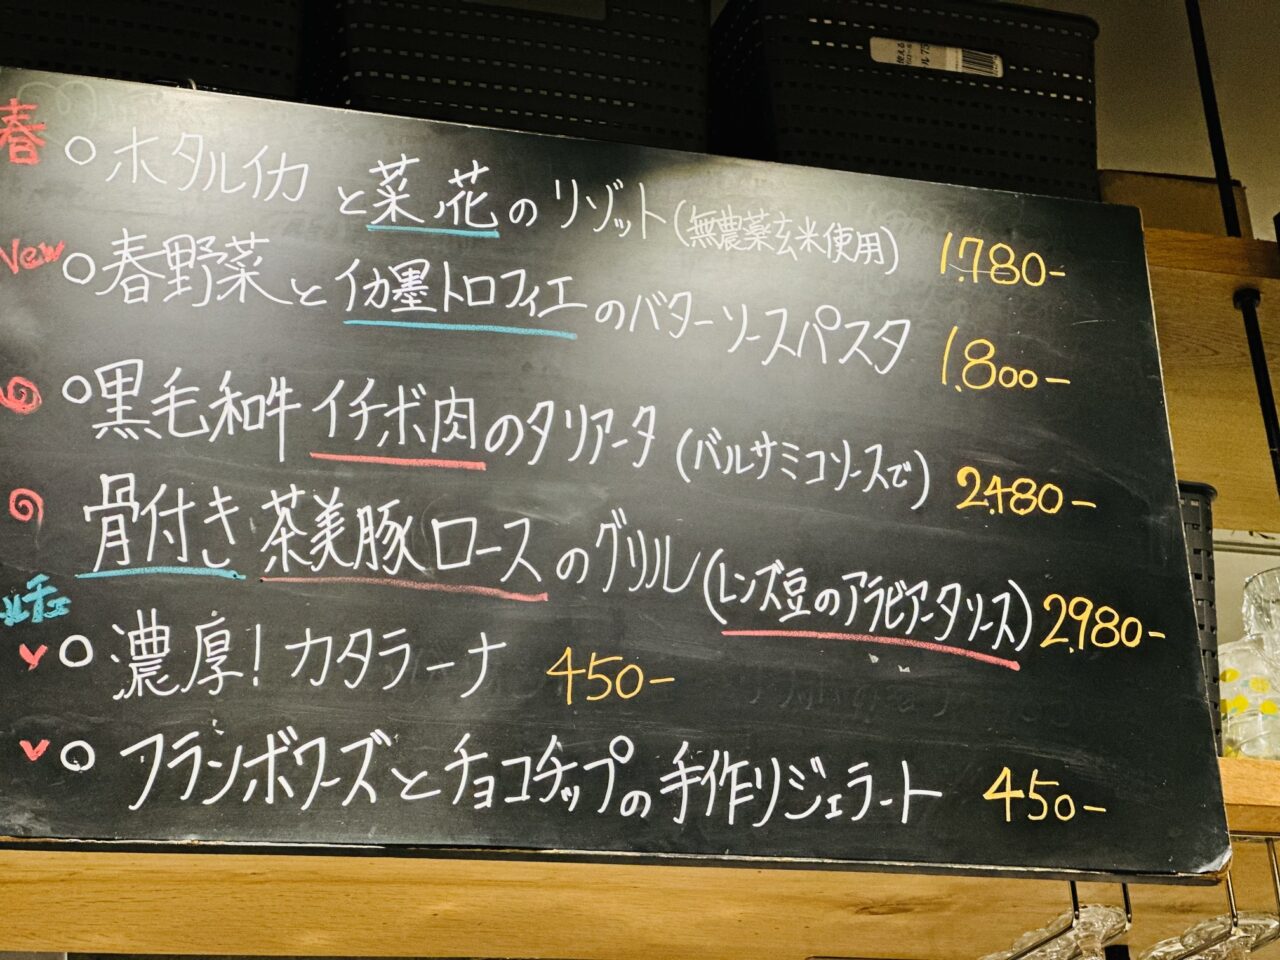 春 ○ホタルイカと菜ノ花のリゾット(無農薬玄米使用) 1.780-
New ○春野菜とイカ墨トロフィエのバターソースパスタ 1.800-
○黒毛和牛イチボ肉のタリアータ(バルサミコソースで) 2.480-
骨付き茶美豚ロースのグリル(レンズ豆のアラビアータソース) 2.980-
ドルチェ
○濃厚!カタラーナ 450-
○フランボワーズとチョコチップの手作りジェラート 450-